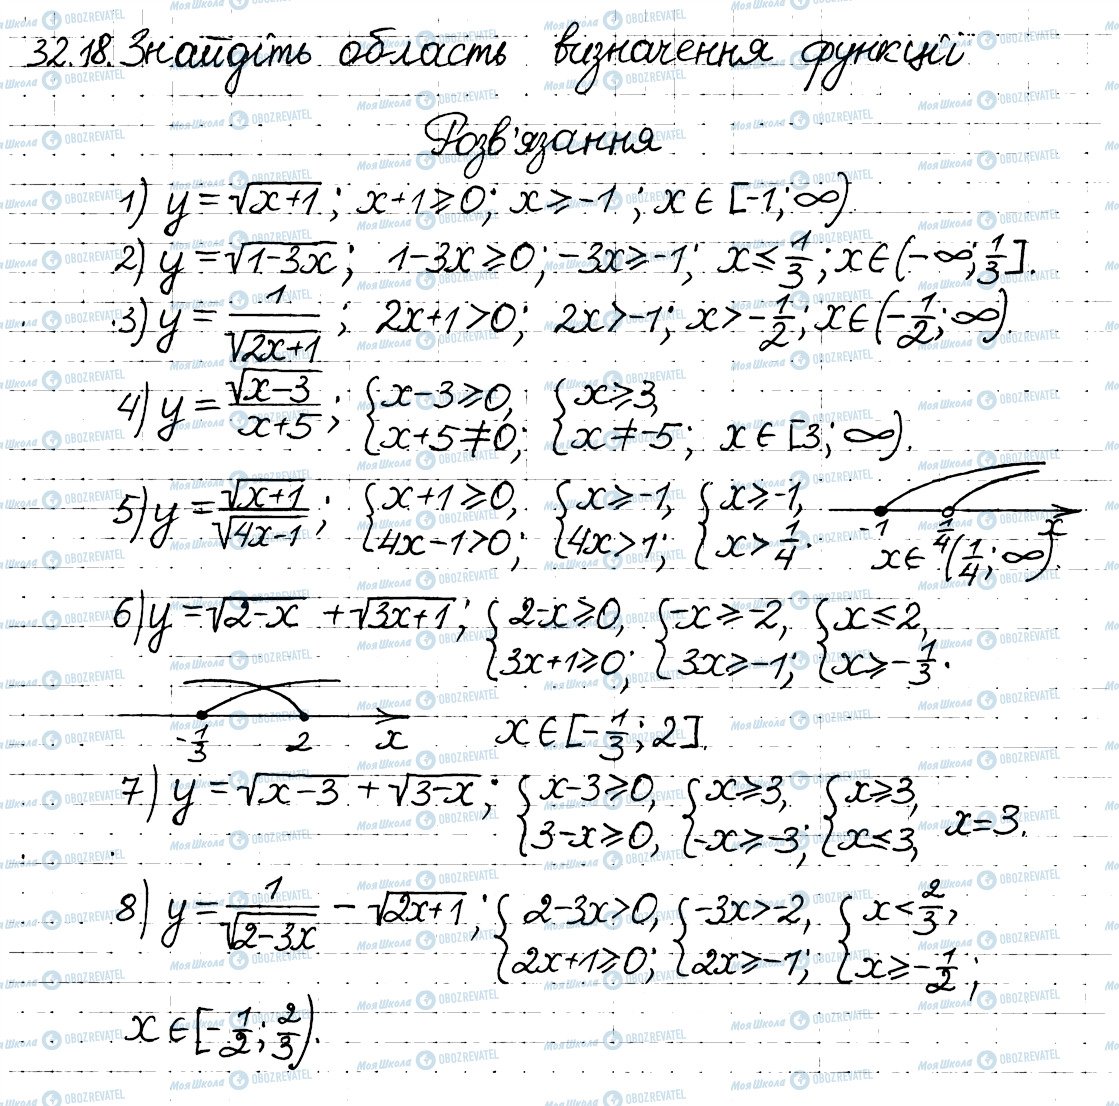 32.18. Знайдіть область визначення функції
Розв'язання
1) y = √(x+1); x+1≥0; x≥-1; x∈[-1;∞).
2) y = √(1-3x); 1-3x≥0; -3x≥-1; x≤1/3; x∈(-∞;1/3].
3) y = 1/√(2x+1); 2x+1>0; 2x>-1; x>-1/2; x∈(-1/2;∞).
4) y = √(x-3)/(x+5); {x-3≥0, x+5≠0; {x≥3, x≠-5; x∈[3;∞).
5) y = √(x+1)/√(4x-1); {x+1≥0, 4x-1>0; {x≥-1, 4x>1; {x≥-1, x>1/4.
-1 1/4 x
x∈(1/4;∞).
6) y = √(2-x) + √(3x+1); {2-x≥0, 3x+1≥0; {-x≥-2, 3x≥-1; {x≤2, x≥-1/3.
-1/3 2 x
x∈[-1/3;2].
7) y = √(x-3) + √(3-x); {x-3≥0, 3-x≥0, {x≥3, -x≥-3; {x≥3, x≤3, x=3.
8) y = 1/√(2-3x) - √(2x+1); {2-3x>0, 2x+1≥0; {-3x>-2, 2x≥-1; {x<2/3, x≥-1/2;
x∈[-1/2;2/3).
Моя Школа OBOZREVATEL